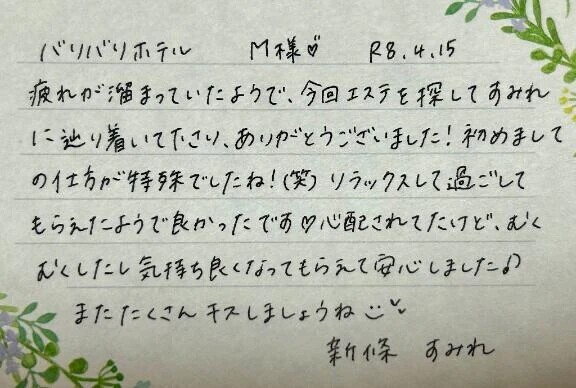 バリバリホテル M様♡ R8.4.15
疲れが溜まっていたようで、今回エステを探してすみれ
に辿り着いて下さり、ありがとうございました!初めまして
の仕方が特殊でしたね!(笑)リラックスして過ごして
もらえたようで良かったです♡心配されてたけど、むく
むくしたし気持ち良くなってもらえて安心しました♪
またたくさんキスしましょうね
新條 すみれ